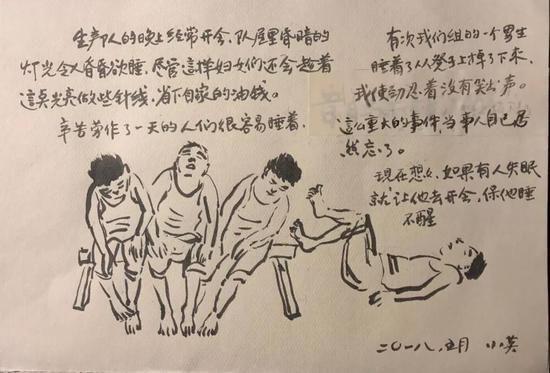 生产队的晚上经常开会，队屋里昏暗的
灯光令人昏昏欲睡，尽管这样妇女们还会趁着
这点光亮做些针线，省下自家的油钱。
辛苦劳作了一天的人们很容易睡着，
有次我们组的一个男生
睡着了从凳子上掉了下来，
我使劲忍着没有笑出声。
这么重大的事件，当事人自己居
然忘了。
现在想么，如果有人失眠
就让他去开会，保他睡
不醒
二〇一八．五月 小英